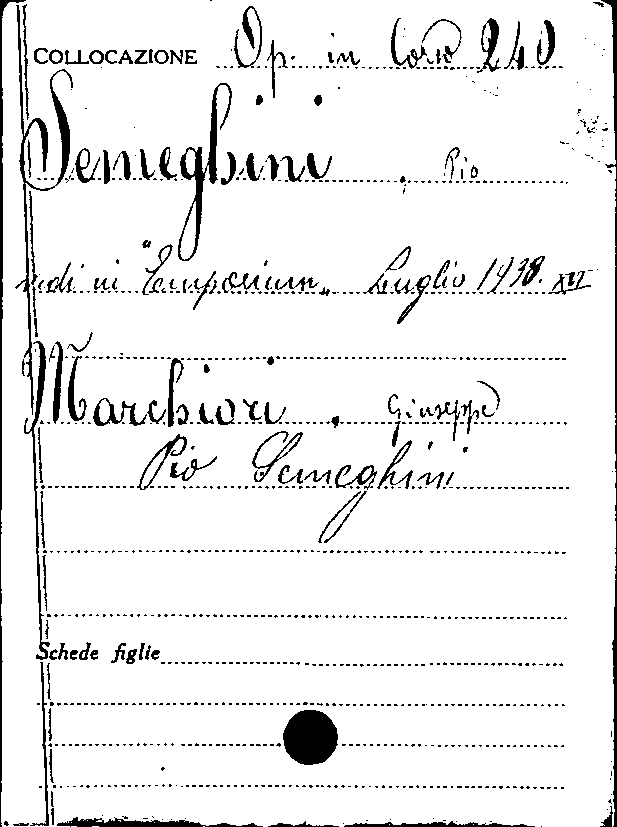 COLLOCAZIONE Op. in Corso 240
Semeghini, Pio
vedi in "Emporium" Luglio 1938. XVI
Marchiori, Giuseppe
Pio Semeghini
Schede figlie